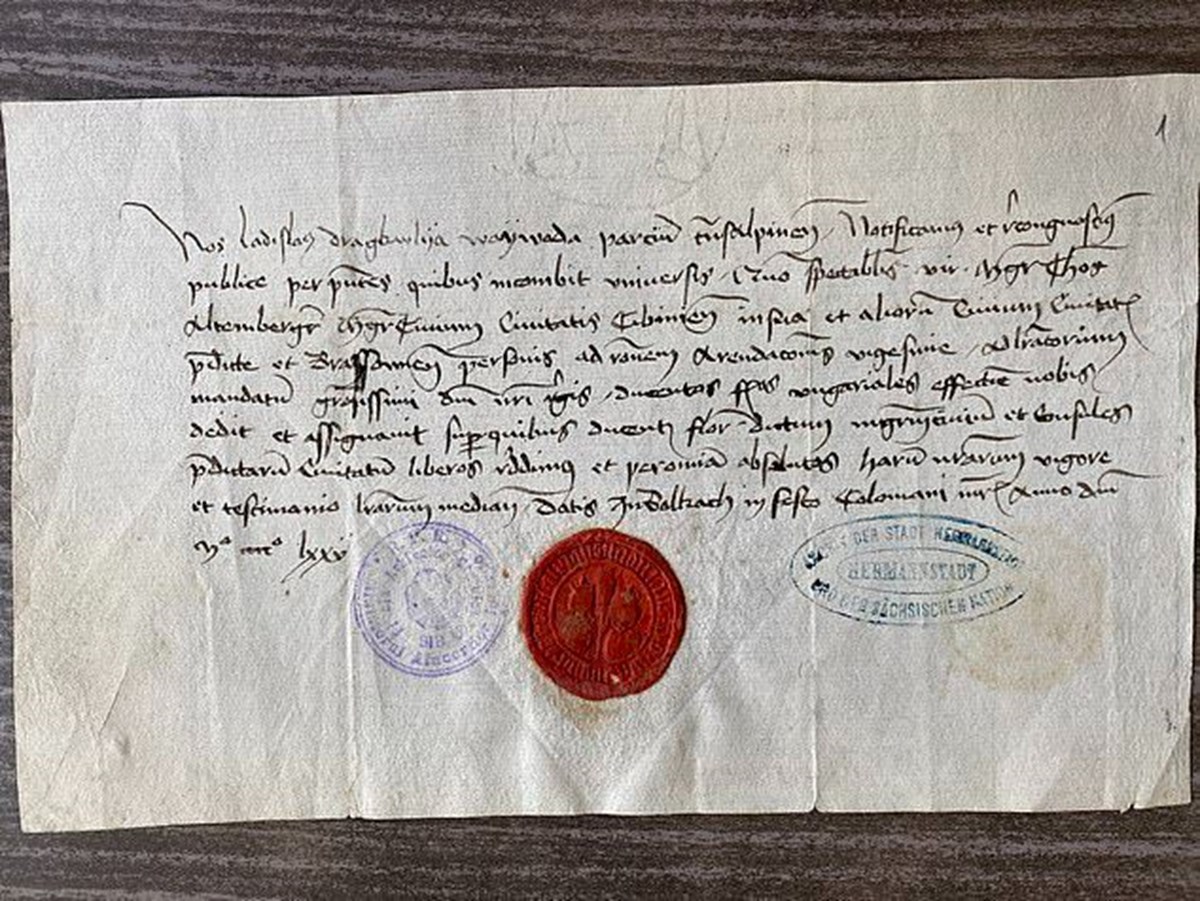 1
Nos Ladislaus dragkwlija waywoda parciū trāsalpinēn Notificamus et recongnoscim9
publice per pn̄tes quibus incombit universis Quō spectabilis vir Mgr Thos
Altemberger Mgr Civium Civitatis Cibinien̄ in sua et aliorū Civium Civitat
p̄dicte et Brassowien̄ personis ad racōnem Arendacōnis vigesime Ad lrātorium
mandatū grōsissimi dn̄i nr̄i regis ducentos flos ungariales effectie nobis
dedit et assignavit super quibus ducent flor dictum mgrm̄ civiū et Consules
p̄dictarū Civitatū liberos reddim9 et per omnia absolutos harū nr̄arum vigore
et testimonio lr̄arum median̄ Datis In Baltzach in festo Colomani mr Anno dn̄i
Mo cccco lxxv
DER STADT HERMANNSTADT
HERMANNSTADT
UND DER SÄCHSISCHEN NATION